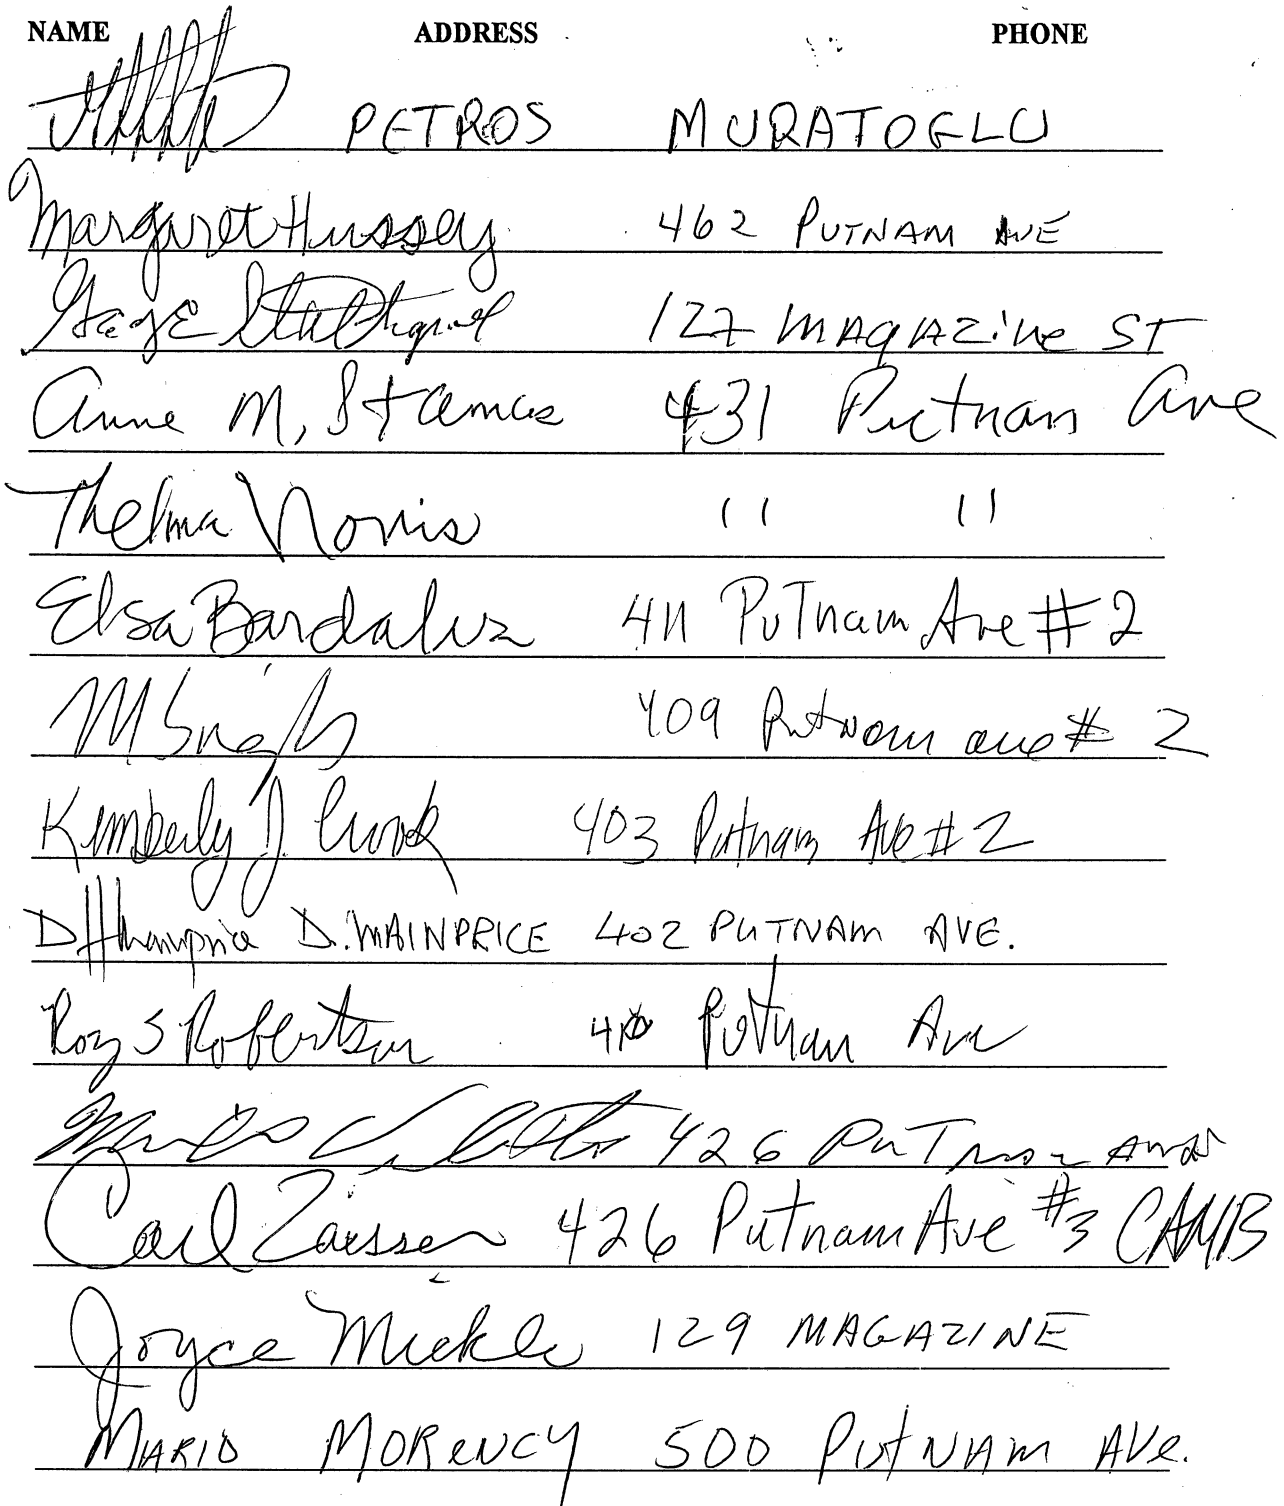 NAME ADDRESS PHONE
PETROS MURATOGLU
Margaret Hussey 462 PUTNAM AVE
127 MAgAZiNe ST
Anne M. Stamas 431 Putnam Ave
Thelma Norris 11 11
Elsa Bardalez 411 PuTnam Ave # 2
M Singh 409 Putnam ave # 2
Kimberly J. Crook 403 Putnam Ave # 2
D. MAINPRICE 402 PUTNAM AVE.
Roy S Robertson Putnam Ave
426 PuTnam
Carl Zaessen 426 Putnam Ave #3 CAMB
Joyce Mickle 129 MAGAZINE
MARIO MORENCY 500 PutNAM AVe.